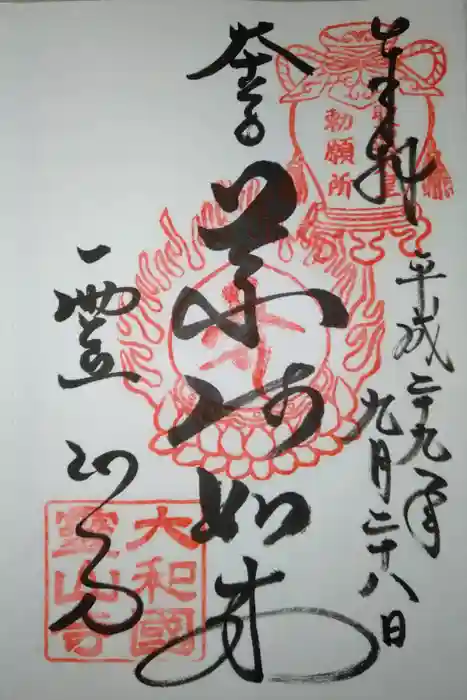 奉拝
平成二十九年
九月二十八日
薬師如来
霊山寺
皇
勅願所
大和國
靈山寺